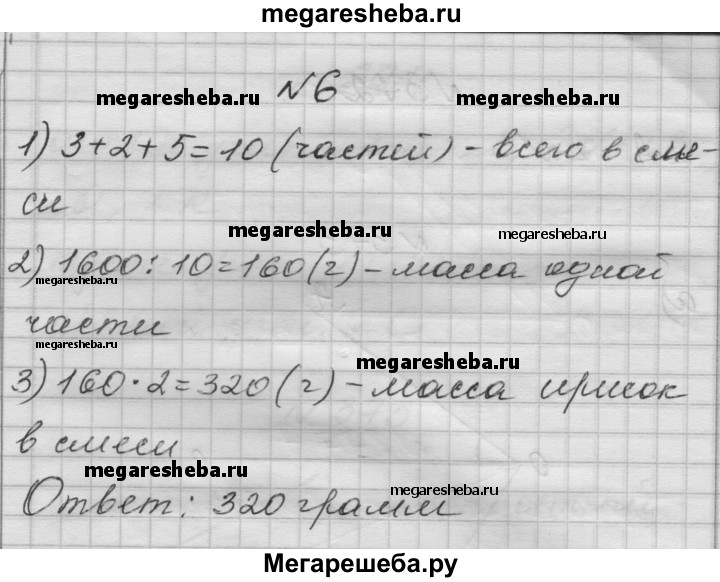 megaresheba.ru
№6
megaresheba.ru megaresheba.ru
1) 3+2+5=10 (частей) - всего в сме-
си
megaresheba.ru megaresheba.ru
2) 1600:10=160(г) - масса одной
megaresheba.ru
части
megaresheba.ru
megaresheba.ru
3) 160·2=320(г) - масса ирисок
в смеси
megaresheba.ru
megaresheba.ru
Ответ: 320 грамм
Мегарешеба.ру